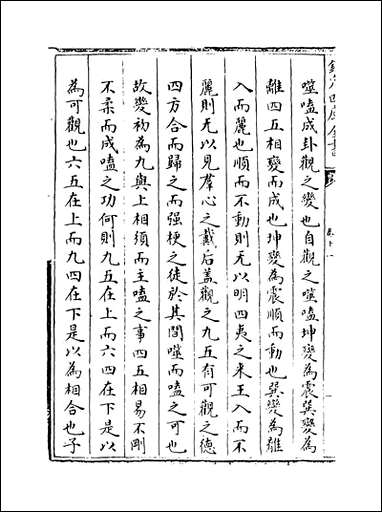 噬嗑成卦觀之變也自觀之噬嗑坤變為震巽變為
離四五相變而成也坤變為震順而動也巽變為離
入而麗也順而不動則无以明四夷之來王入而不
麗則无以見羣心之戴后盖觀之九五有可觀之徳
四方合而歸之而强梗之徒於其間噬而嗑之可也
故變初為九與上相須而主嗑之事四五相易不剛
不柔而成嗑之功何則九五在上而六四在下是以
為可觀也六五在上而九四在下是以為相合也子